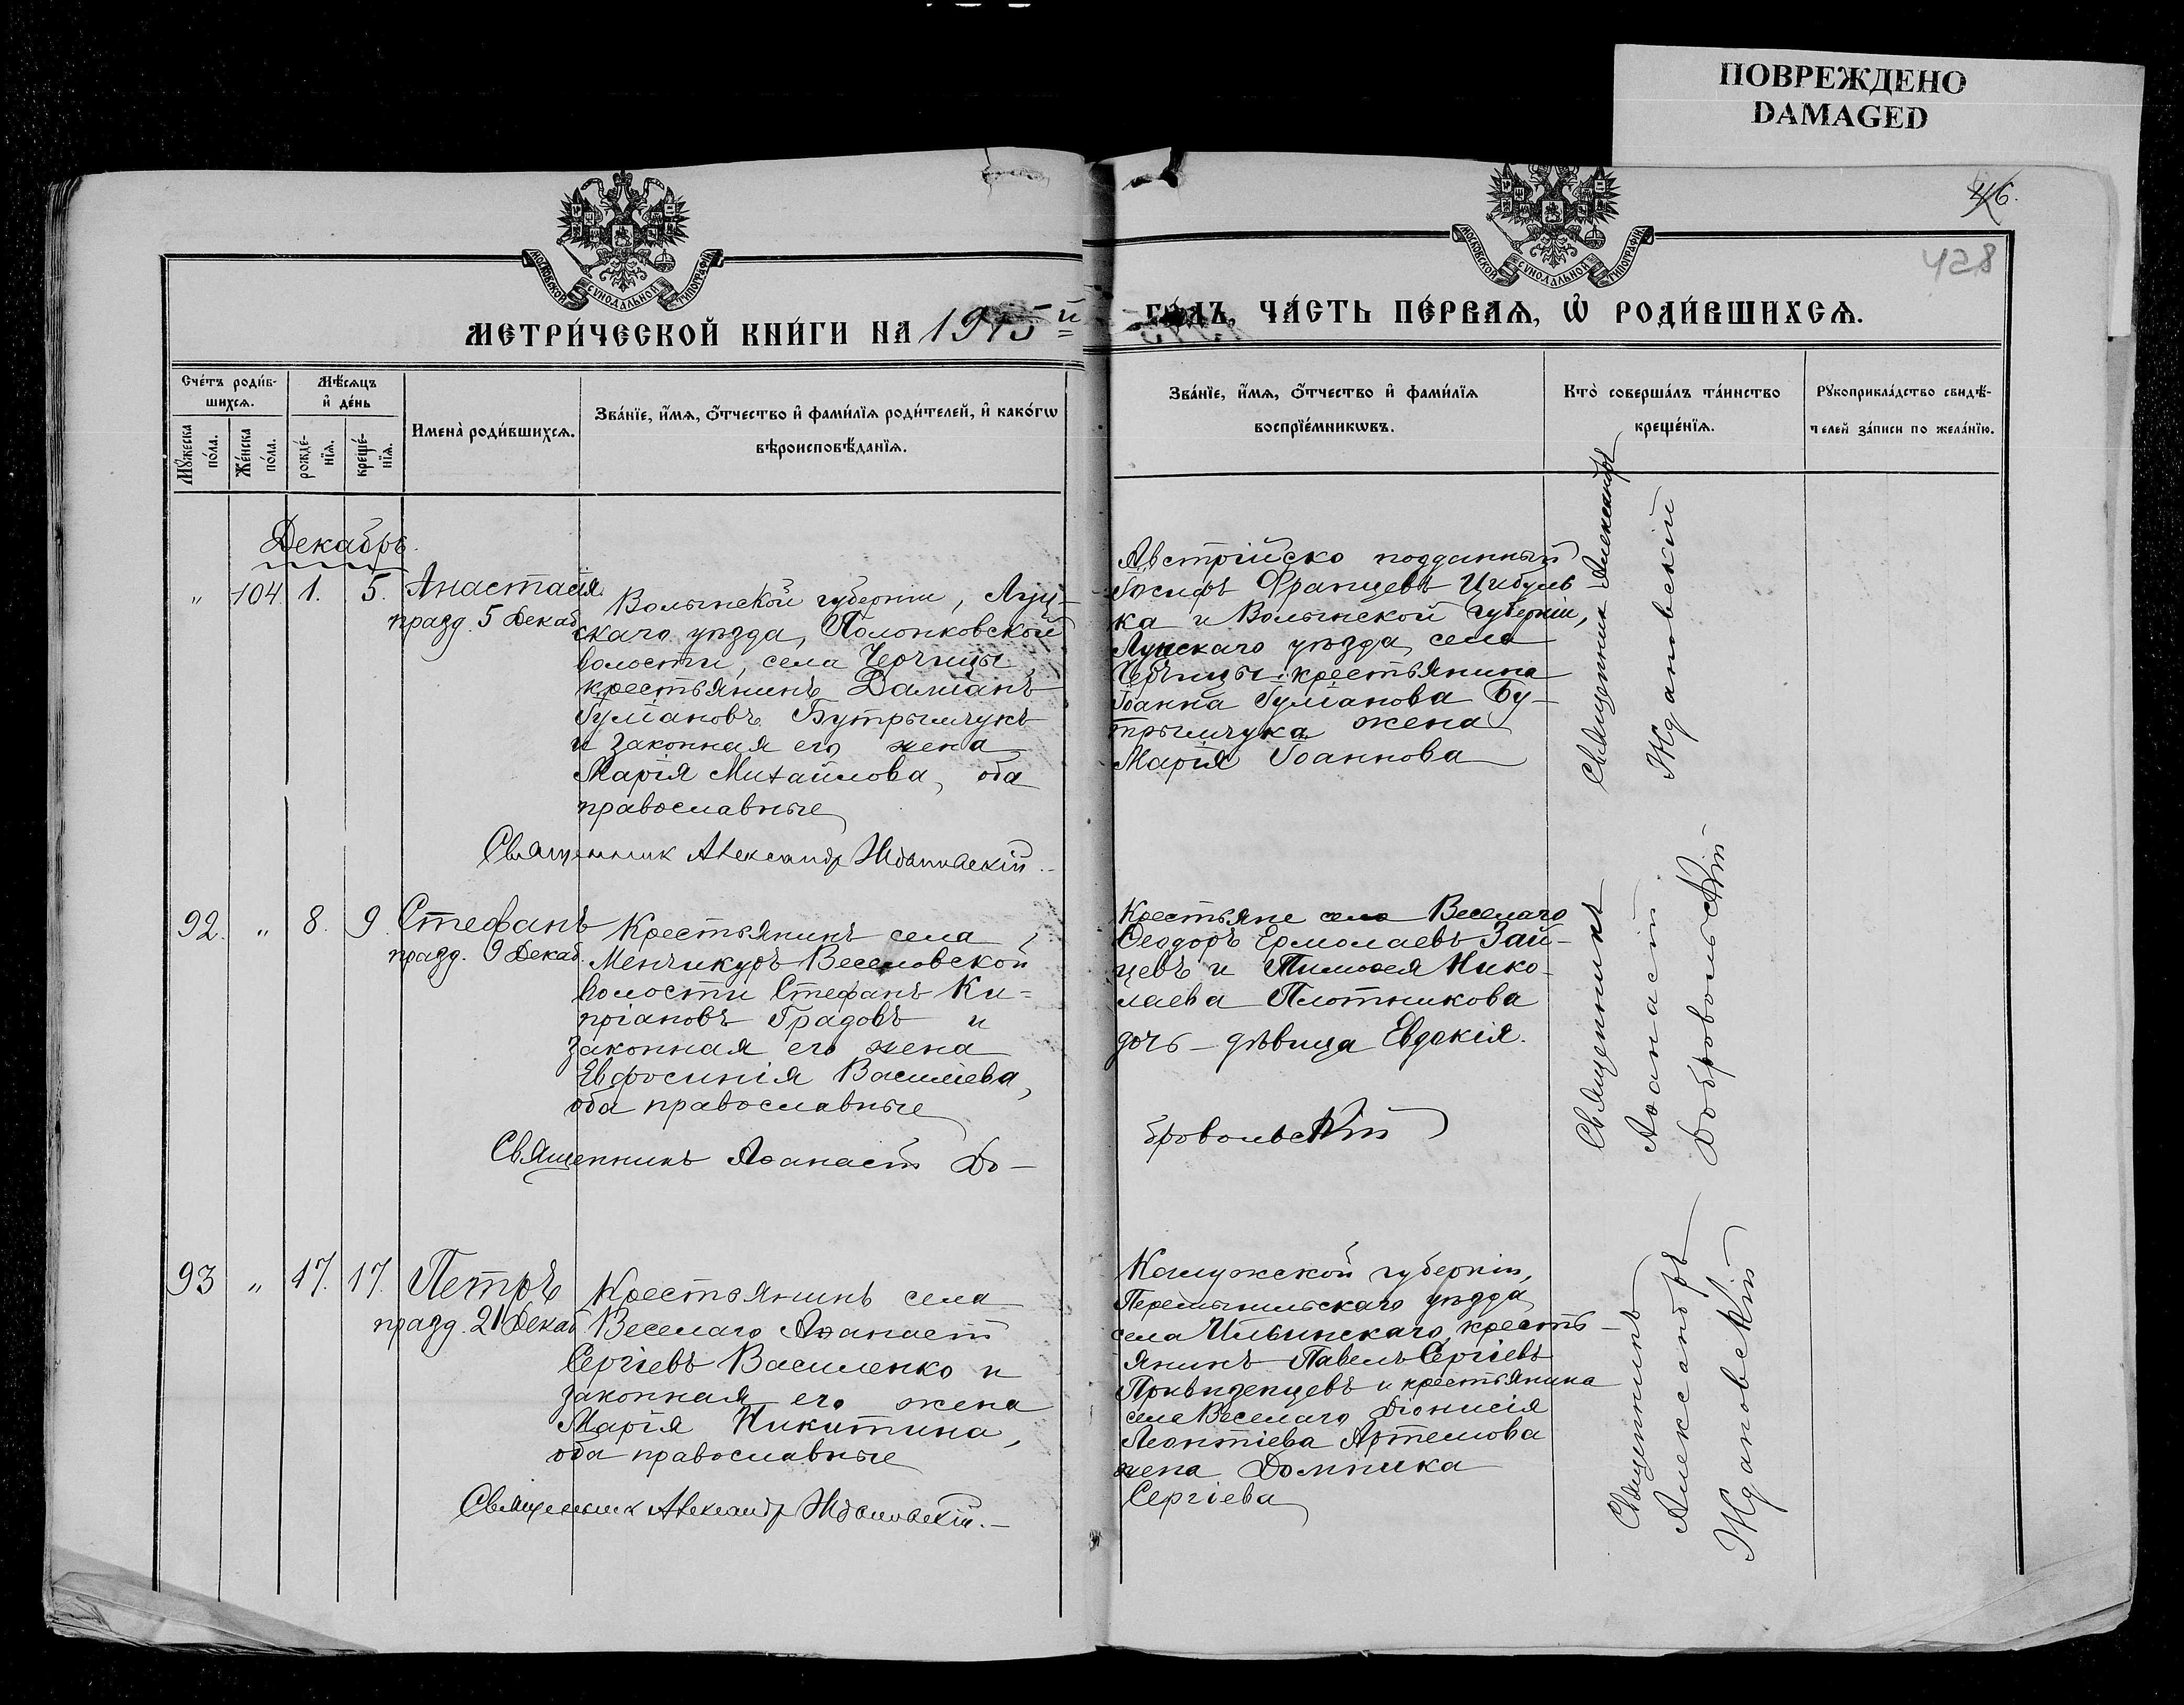 ПОВРЕЖДЕНО
DAMAGED
46.
428
МОСКОВСКОЙ СѴНОДАЛЬНОЙ ТИПОГРАФІИ
МОСКОВСКОЙ СѴНОДАЛЬНОЙ ТИПОГРАФІИ
МЕТРИ́ЧЕСКОЙ КНИ́ГИ НА 1915й ГО́ДЪ, ЧА́СТЬ ПЕ́РВАѦ, Ѽ РОДИ́ВШИХСѦ.
Сче́тъ роди́в-
шихсѧ.
Мꙋ́жеска по́ла.
Же́нска по́ла.
Мѣ́сѧцъ
и҆ де́нь
рожде́-
нїѧ.
креще́-
нїѧ.
Имена̀ роди́вшихсѧ.
Зва́нїе, и҆́мѧ, ѻ҆́тчество и҆ фами́лїѧ роди́телей, и҆ како́гѡ
вѣроисповѣ́данїѧ.
Зва́нїе, и҆́мѧ, ѻ҆́тчество и҆ фами́лїѧ
воспрїе́мникѡвъ.
Кто̀ соверша́лъ та́инство
креще́нїѧ.
Рꙋкоприкла́дство свидѣ́-
телей за́писи по жела́нїю.
Декабрь
„ 104. 1. 5. Анастасія
празд. 5 Декаб.
Волынской губерніи, Луц-
скаго уѣзда, Полонковской
волости, села Черчицы
крестьянинъ Даміанъ
Іуліановъ Бутрымчукъ
и законная его жена
Марія Михайлова, оба
православные
Священник Александр Ждановскій.
Австрійско подданный
Іосифъ Францевъ Цибуль
ка и Волынской губерніи,
Луцскаго уѣзда села
Черчицы крестьянина
Іоанна Іуліанова Бу-
трымчука жена
Марія Іоаннова
Священник Александръ
Ждановскій
92. „ 8. 9. Стефанъ
празд. 9 Декаб.
Крестьянинъ села
Менчикуръ Веселовской
волости Стефанъ Ки-
пріановъ Градовъ и
законная его жена
Евфросинія Василіева,
оба православные
Священникъ Аѳанасій До-
бровольскій
Крестьяне села Веселаго
Ѳеодоръ Ермолаевъ Зай-
цевъ и Тимоѳея Нико-
лаева Плотникова
дочь - дѣвица Евдокія.
Священникъ
Аѳанасій
Добровольскій
93 „ 17. 17. Петръ
празд. 21 Декаб.
Крестьянинъ села
Веселаго Аѳанасій
Сергіевъ Василенко и
законная его жена
Марія Никитина,
оба православные
Священник Александр Ждановскій.
Калужской губерніи,
Перемышльскаго уѣзда
села Ильинскаго, кресть-
янинъ Павелъ Сергіевъ
Привиденцевъ и крестьянина
села Веселаго Діонисія
Леонтіева Артемова
жена Домника
Сергіева
Священникъ
Александръ
Ждановскій